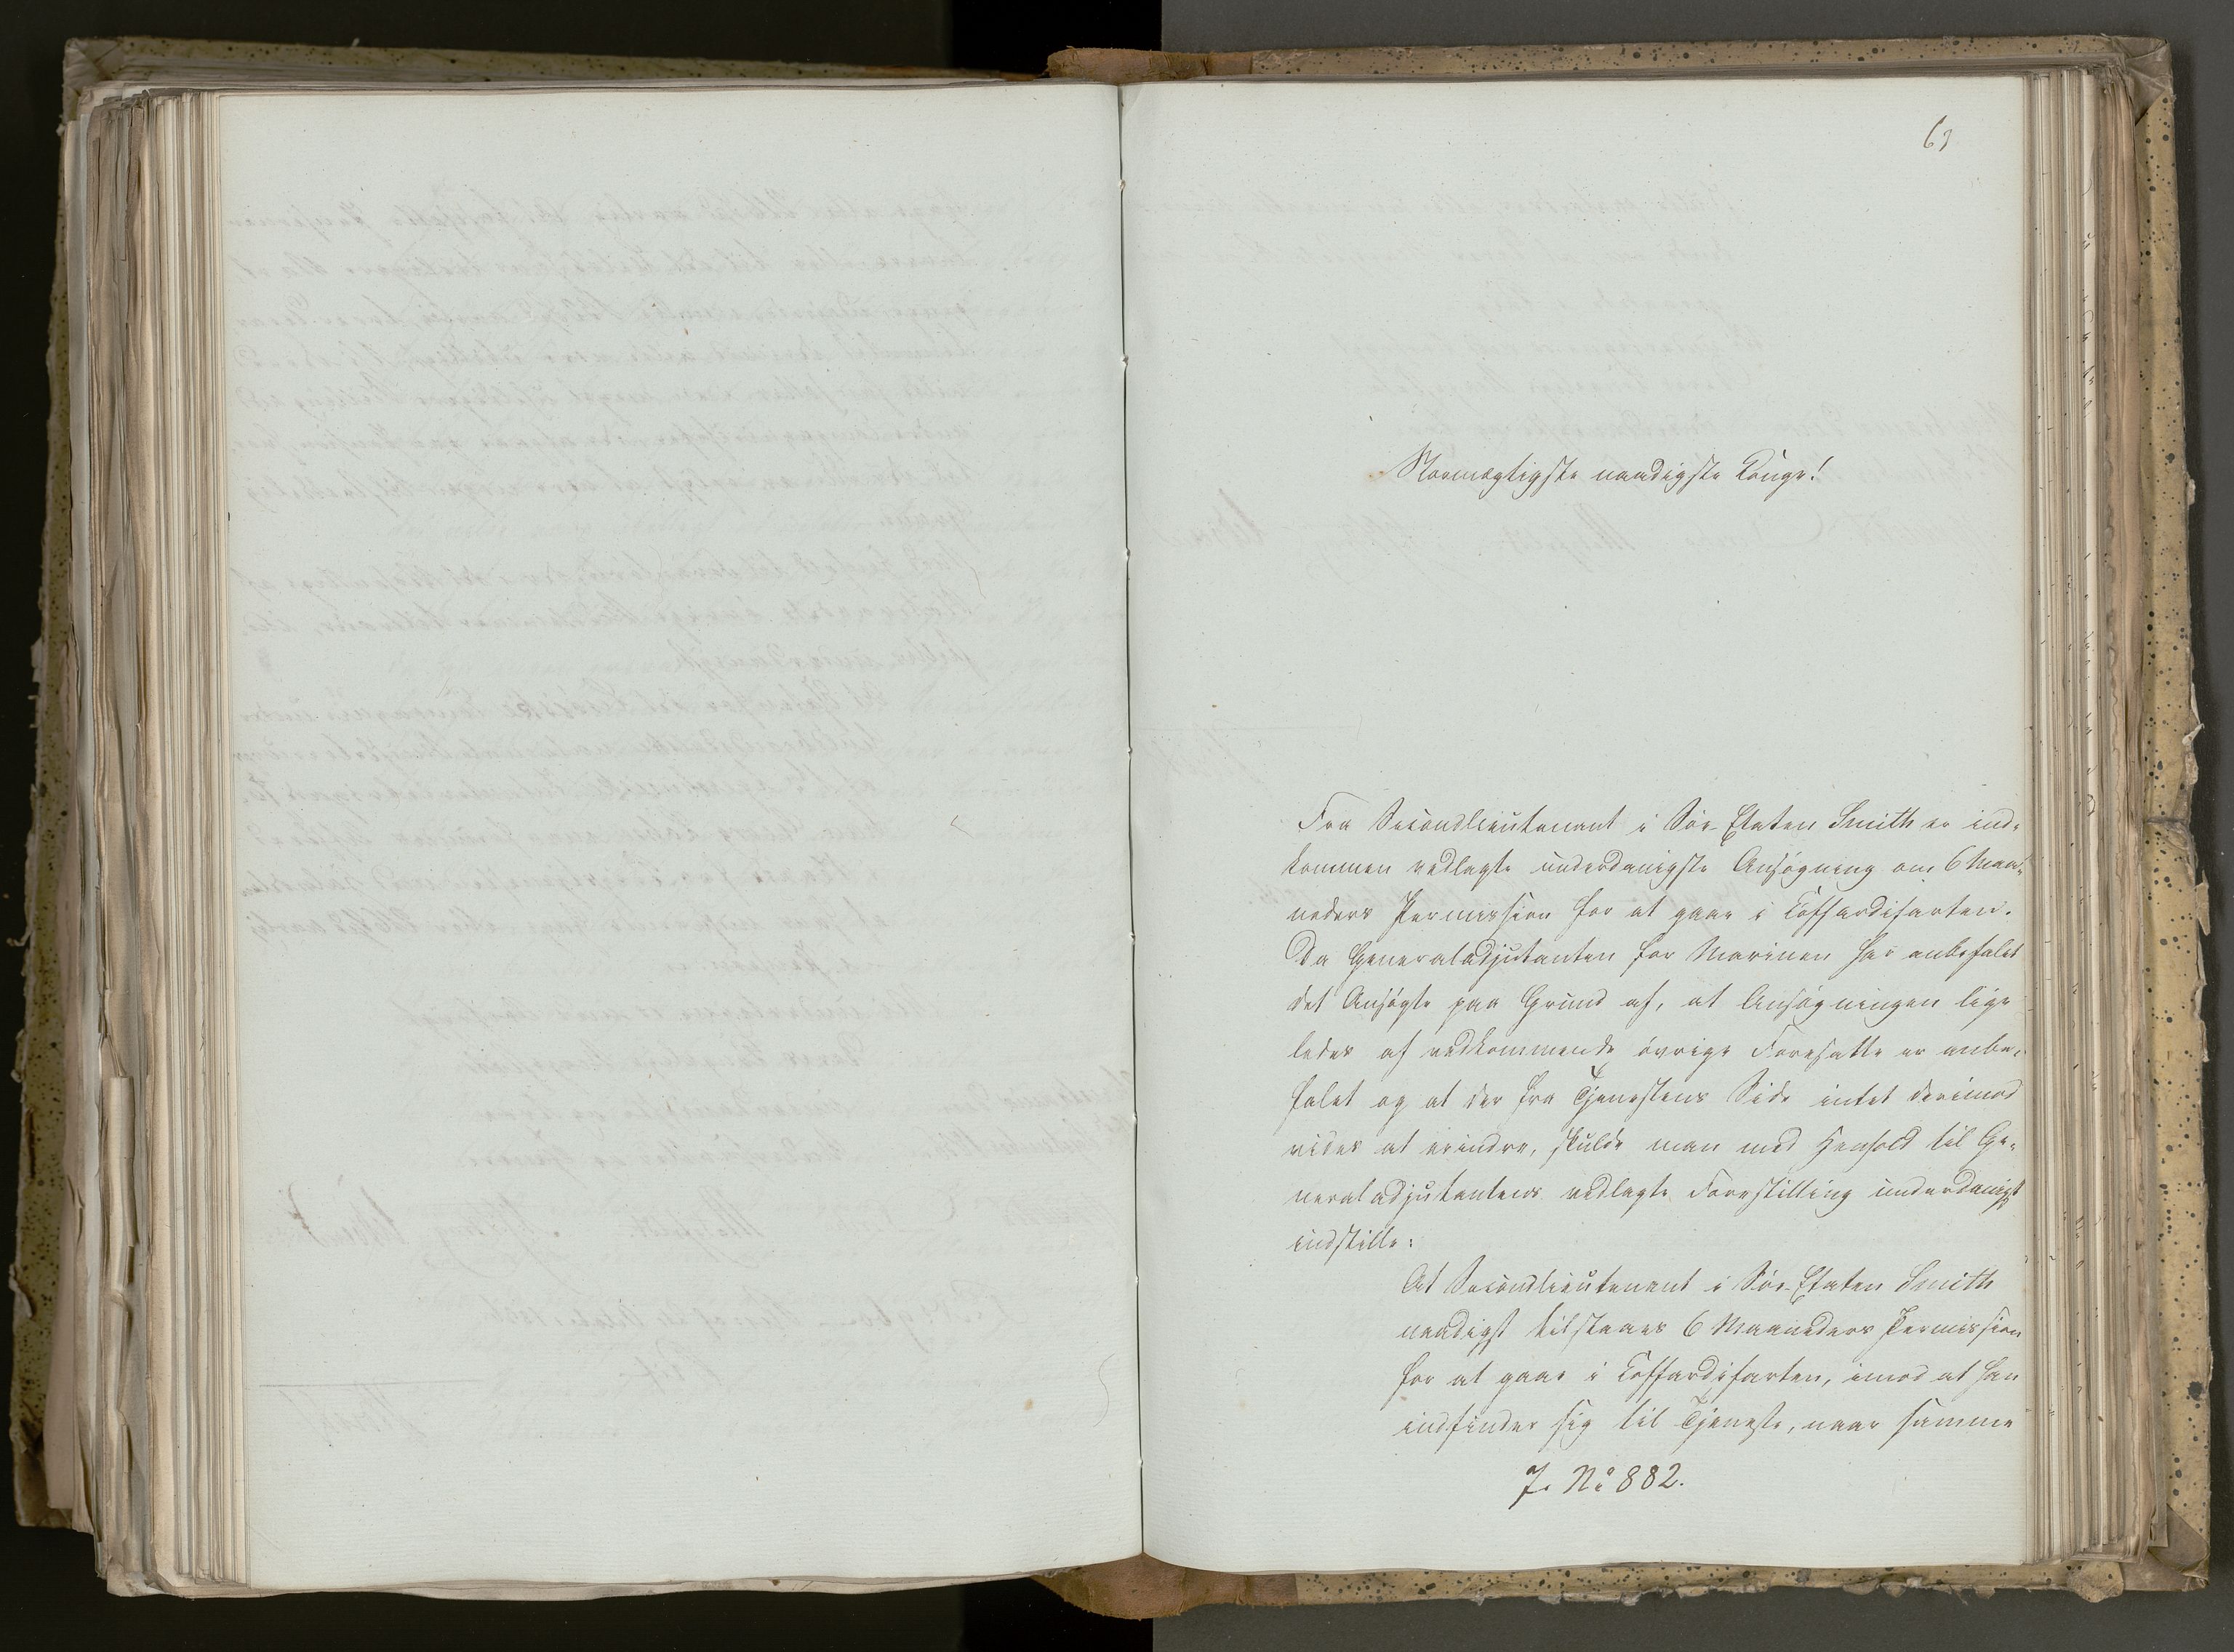 63
Stormægtigste naadigste Konge!
Fra Secondlieutenant i Søe-Etaten Smith er ind-
kommen vedlagte underdanigste Ansøgning om 6 Maa-
neders Permission for at gaae i Coffardifarten.
Da Generaladjutanten for Marinen har anbefalet
det Ansøgte paa Grund af, at Ansøgningen lige
ledes af vedkommende øvrige Foresatte er anbe-
falet og at der fra Tjenestens Side intet derimod
vides at erindre, skulde man med Henhold til Ge-
neraladjutantens vedlagte Forestilling underdanigst
indstille:
At Secondlieutenant i Søe-Etaten Smith
naadigst tilstaaes 6 Maaneders Permission
for at gaae i Coffardifarten, imod at han
indfinder sig til Tjeneste, naar samme
J. No 882.